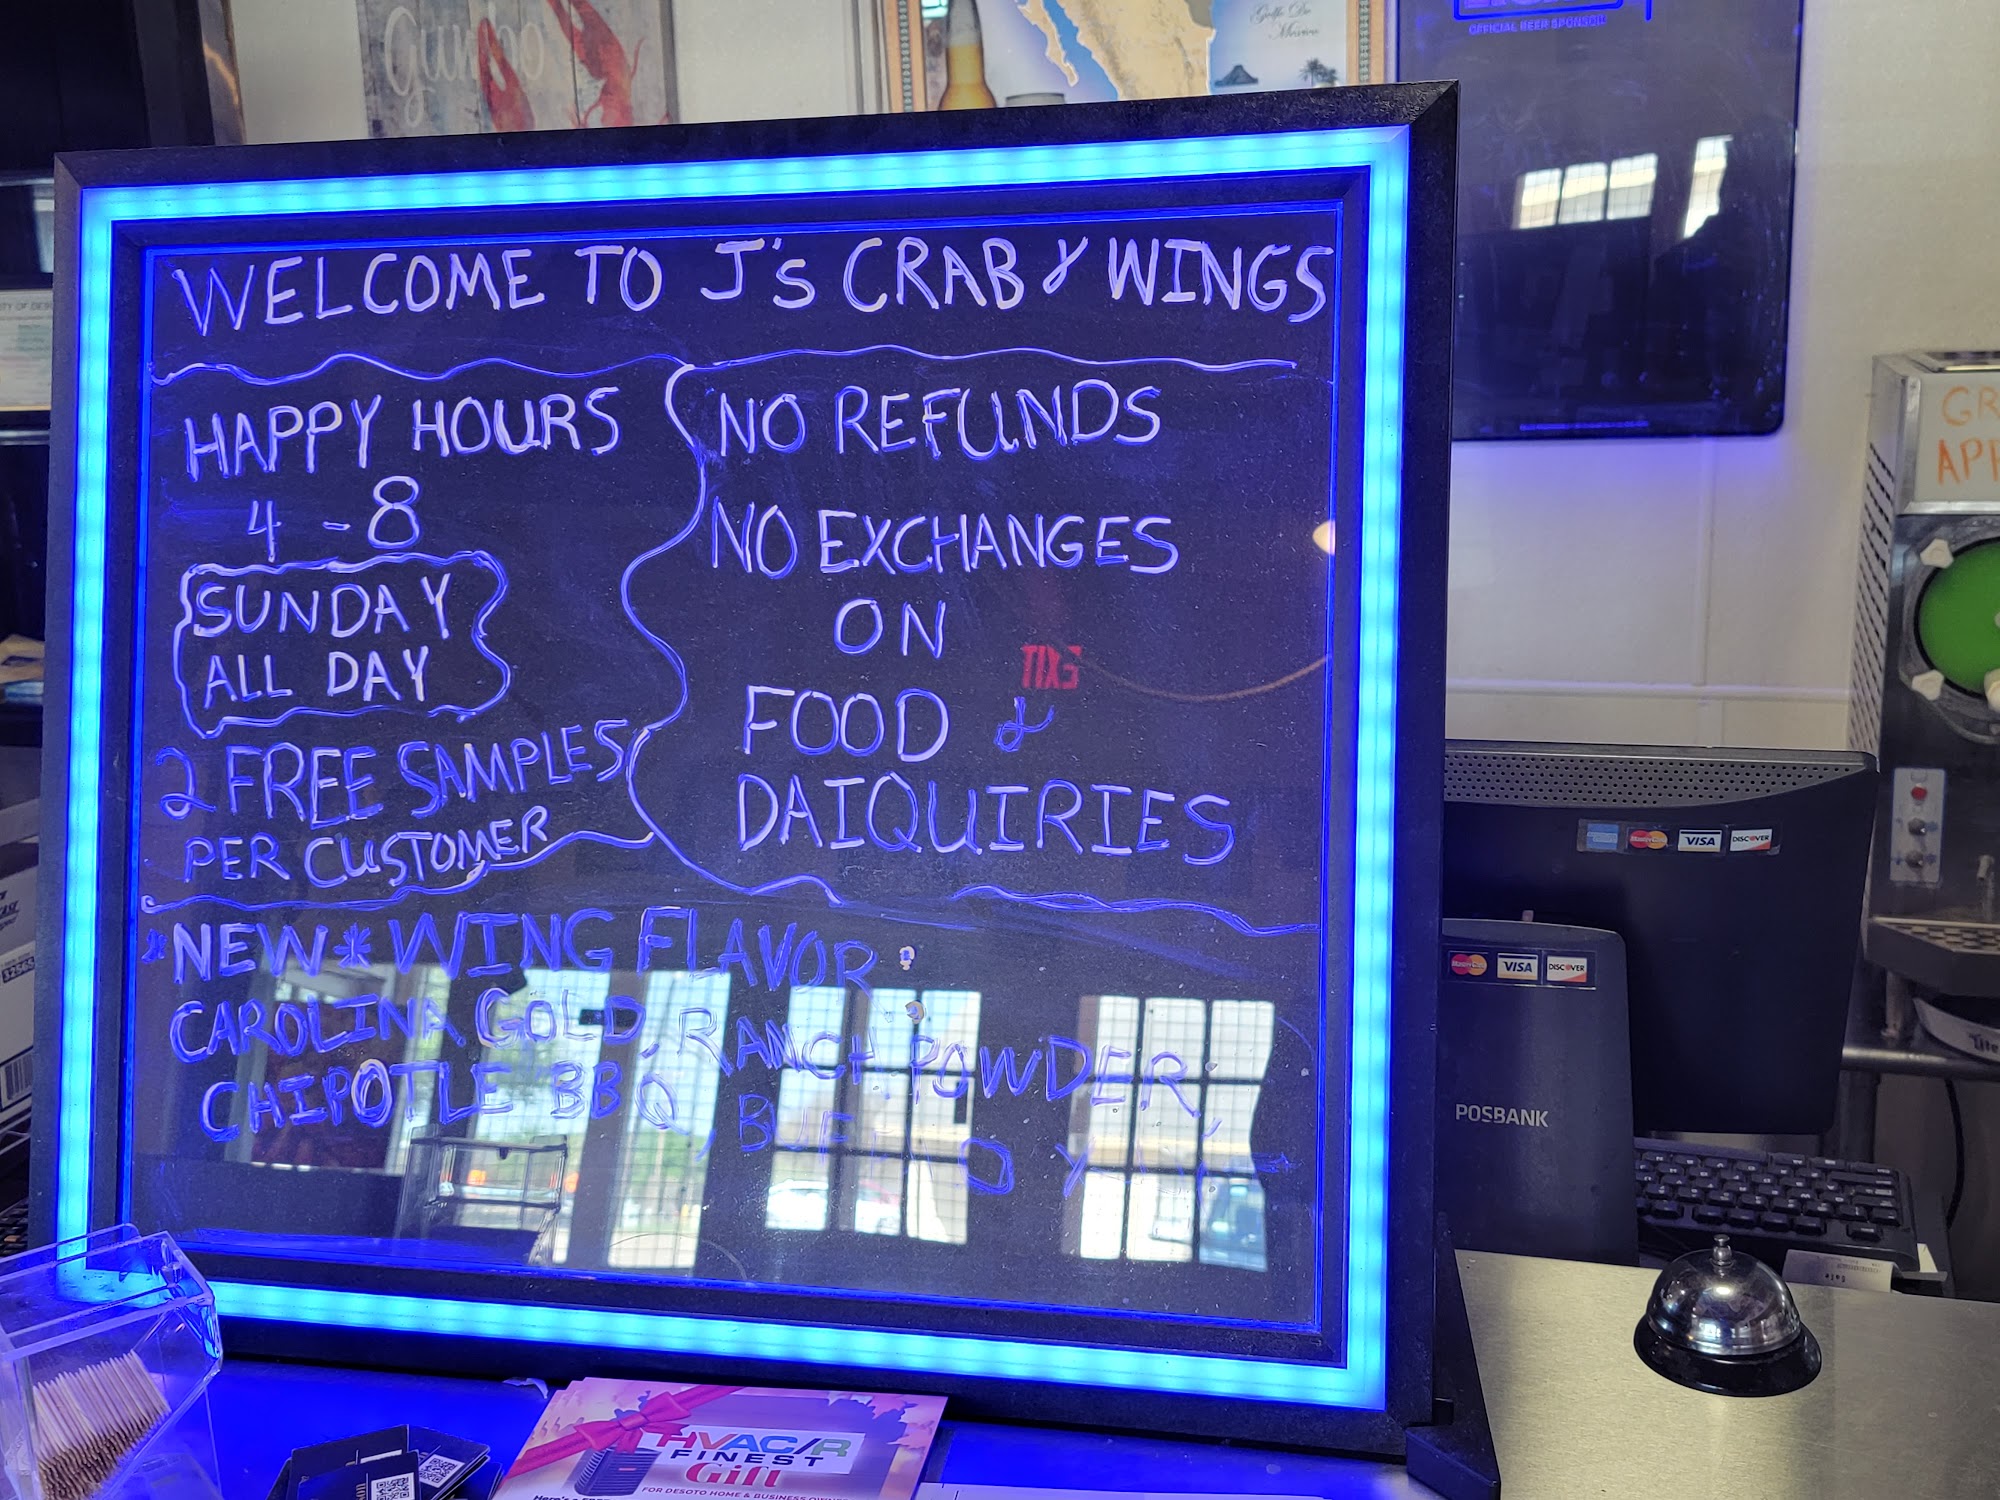 Gumbo
Golfo De
Mexico
OFFICIAL BEER SPONSOR
WELCOME TO J'S CRAB & WINGS
HAPPY HOURS
4 - 8
SUNDAY
ALL DAY
2 FREE SAMPLES
PER CUSTOMER
NO REFUNDS
NO EXCHANGES
ON
FOOD &
DAIQUIRIES
*NEW* WING FLAVOR:
CAROLINA GOLD, RANCH POWDER,
CHIPOTLE BBQ,
DISCOVER
VISA
MasterCard
VISA
DISCOVER
POSBANK
HVAC/R
FINEST
Gift
FOR DESOTO HOME & BUSINESS